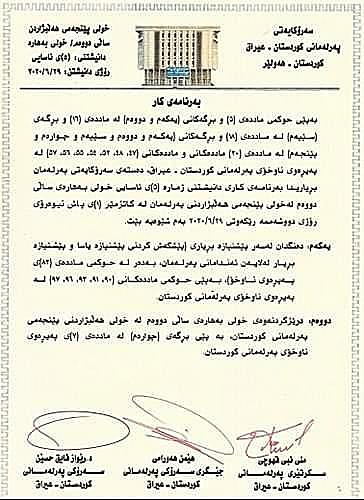 سەرۆکایەتی
پەرلەمانی کوردستان - عیراق
کوردستان - هەولێر
خولی پێنجەمی هەڵبژاردن
ساڵی دووەم/ خولی بەهارە
دانیشتنی: (٥)ی ئاسایی
رۆژی دانیشتن: ٢٠٢٠/٦/٢٩
بەرنامەی کار
بەپێی حوکمی ماددەی (٥) و بڕگەکانی (یەکەم و دووەم) لە ماددەی (١٦) و بڕگەی
(سێیەم) لە ماددەی (١٨) و بڕگەکانی (یەکەم و دووەم و سێیەم و چوارەم و
پێنجەم) لە ماددەی (٢٠) ماددەکانی و ماددەکانی (٤٧، ٤٨، ٥٢، ٥٤، ٥٥، ٥٦، ٥٧) لە
پەیڕەوی ناوخۆی پەرلەمانی کوردستان - عیراق، دەستەی سەرۆکایەتی پەرلەمان
بڕیاریدا بەرنامەی کاری دانیشتنی ژمارە (٥)ی ئاسایی خولی بەهارەی ساڵی
دووەم لەخولی پێنجەمی هەڵبژاردنی پەرلەمان لە کاتژمێر (١)ی پاش نیوەڕۆی
رۆژی دووشەممە رێکەوتی ٢٠٢٠/٦/٢٩ بەم شێوەیە بێت.
یەکەم، دەنگدان لەسەر پێشنیازە بڕیاری (پێشکەش کردنی پێشنیازە یاسا و پێشنیازە
بڕیار لەلایەن ئەندامانی پەرلەمان، بەدەر لە حوکمی ماددەی (٨٢)ی
پەیڕەوی ناوخۆ)، بەپێی حوکمی ماددەکانی (٩٠، ٩١، ٩٣، ٩٦، ٩٧) لە
پەیڕەوی ناوخۆی پەرلەمانی کوردستان.
دووەم، درێژکردنەوەی خولی بەهارەی ساڵی دووەم لە خولی هەڵبژاردنی پێنجەمی
پەرلەمانی کوردستان، بە پێی بڕگەی (چوارەم) لە ماددەی (٧)ی پەیڕەوی
ناوخۆی پەرلەمانی کوردستان.
منی نبی قهوچی
سکرتێری پەرلەمانی
کوردستان - عیراق
هێمن هەورامی
جێگری سەرۆکی پەرلەمانی
کوردستان - عیراق
د. رێواز فایق حسێن
سەرۆکی پەرلەمانی
کوردستان - عیراق